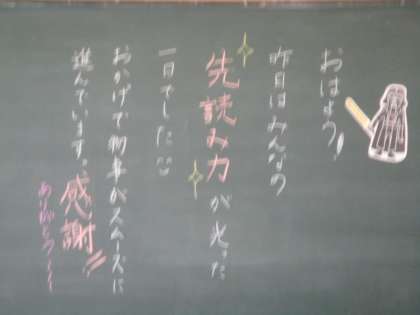 おはよう!
昨日はみんなの
先読み力が光った
一日でした
おかげで物事がスムーズに
進んでいます。感謝!!
ありがとう